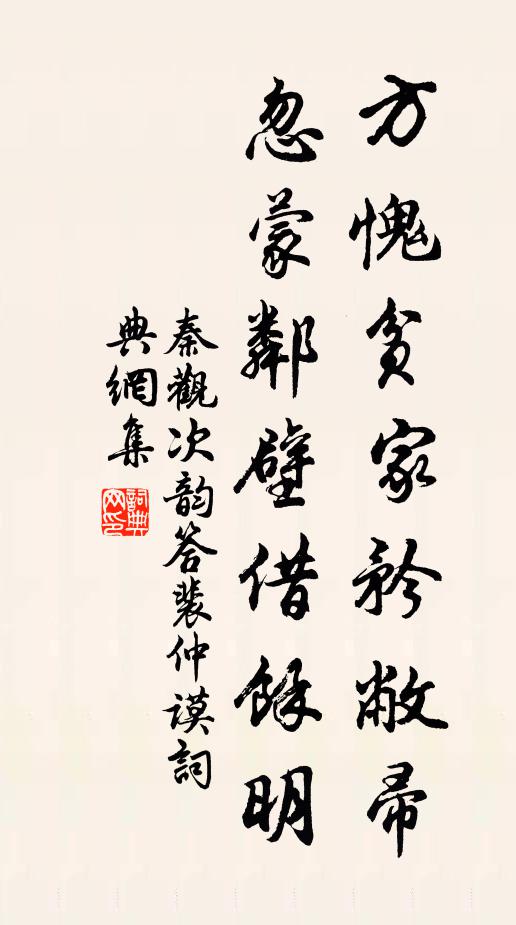 方愧貧家矜敝帚
忽蒙鄰壁借餘明
秦觀次韵答裴仲謨詞
典網集
詞典網印